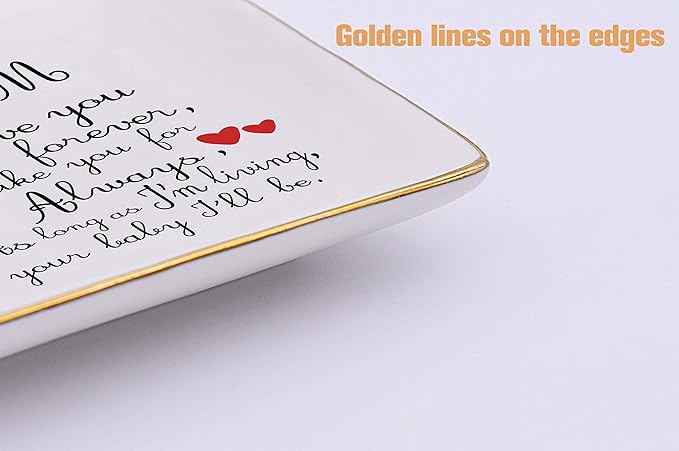 Golden lines on the edges
M
you
forever,
you for
Always,
long as I'm living,
your baby I'll be.